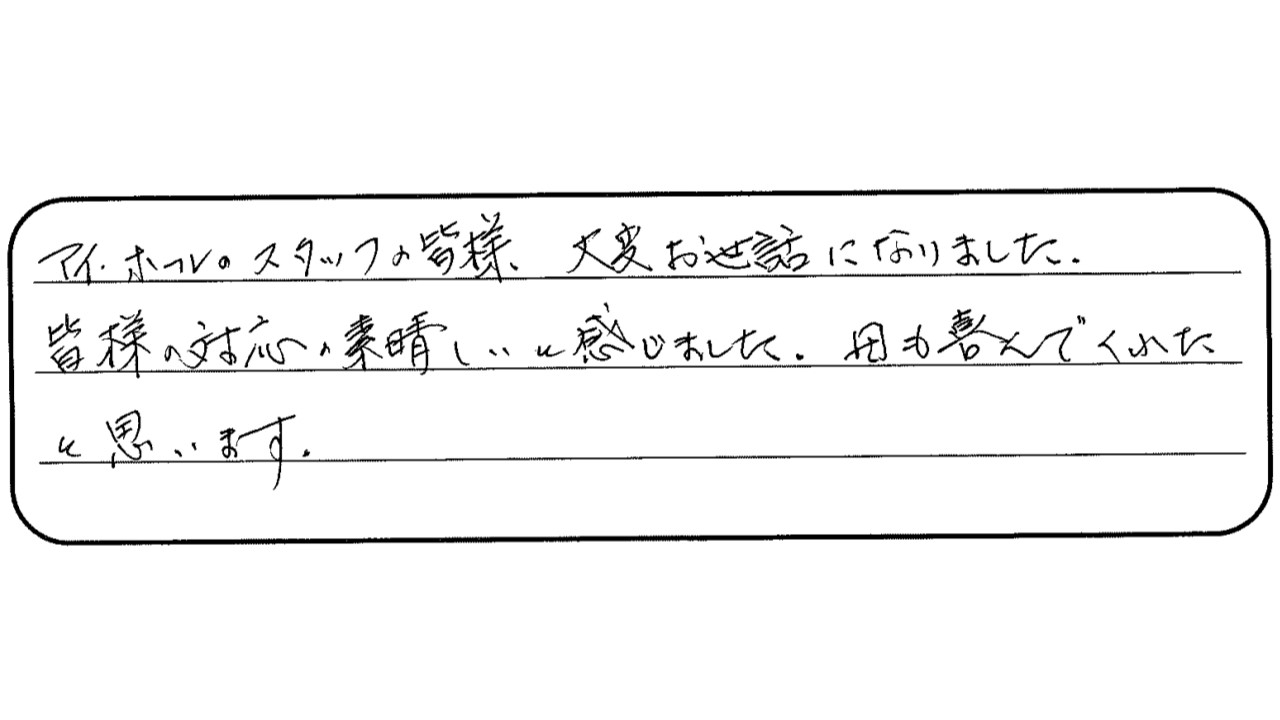 アイ・ホールのスタッフの皆様、大変お世話になりました.
皆様の対応の素晴しいと感じました. 母も喜んでくれた
と思います.